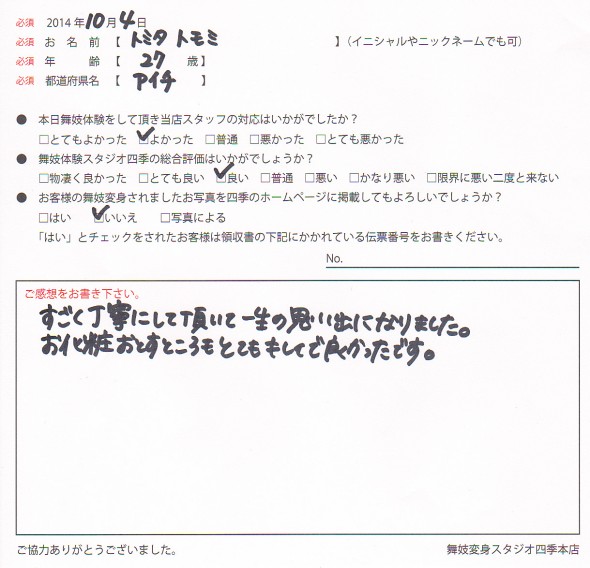 必須 2014年10月4日
必須 お名前【 トミタ トモミ 】(イニシャルやニックネームでも可)
必須 年齢【 27 歳】
必須 都道府県名【 アイチ 】
● 本日舞妓体験をして頂き当店スタッフの対応はいかがでしたか?
□とてもよかった ☑よかった □普通 □悪かった □とても悪かった
● 舞妓体験スタジオ四季の総合評価はいかがでしょうか?
□物凄く良かった □とても良い ☑良い □普通 □悪い □かなり悪い □限界に悪い二度と来ない
● お客様の舞妓変身されましたお写真を四季のホームページに掲載してもよろしいでしょうか?
□はい ☑いいえ □写真による
「はい」とチェックをされたお客様は領収書の下記にかかれている伝票番号をお書きください。
No.
ご感想をお書き下さい。
すごく丁寧にして頂いて一生の思い出になりました。
お化粧おとすところもとても キレイで良かったです。
ご協力ありがとうございました。
舞妓変身スタジオ四季本店